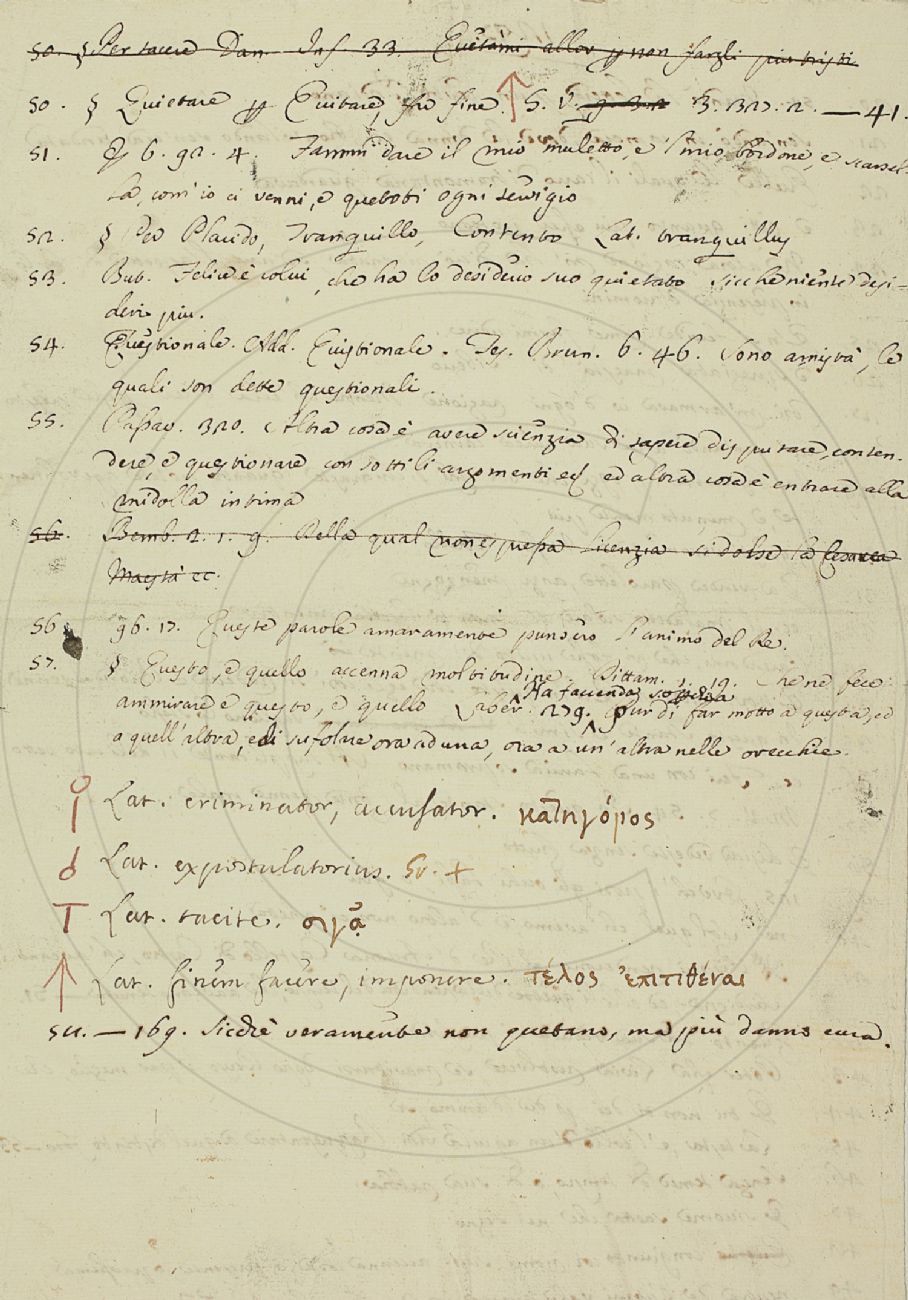 50. § Per tacere Dan. Inf. 33. Quetami allor p non fargli piu tristi
50. § Quietare p Quitare, far fine. S. V. g. 3. 2 3. 327. 2. — 41.
51. E 6. 92. 4. Fammi dare il mio muletto, e 'l mio bordone, e scarsel-
la, com' io ci venni, e quetoti ogni servigio
52. § Per Placido, Tranquillo, Contento Lat. tranquillus
53. But. Felice è colui, che ha lo desiderio suo quietato sicche niente desi-
deri piu.
54. Questionale. Add. Quistionale. Tes. Brun. 6. 46. Sono amistà, le
quali son dette questionali.
55. Passav. 320. Altra cosa è avere scienzia di sapere disputare, conten-
dere, e questionare con sottili argomenti ec ed altra cosa è entrare alla
midolla intima
56. Bemb. 2. 1. 9. Della qual non espressa licenzia si dolse la Cesarea
Maestà ec.
56 96. 17. Queste parole amaramente punsero l'animo del Re.
57. § Questo, e quello accenna moltitudine. Dittam. 1. 19. ne fece
Ha faccenda soperchia
ammirare e questo, e quello Liber. 279. pur di far motto a questa, ed
a quell'altra, e di sufolare ora ad una, ora a un'altra nelle orecchie.
Lat. criminator, accusator. κατηγόρος
Lat. expostulatorius. Gr. +
T Lat. tacite. σιγᾷ
Lat. finem facere, imponere. τέλος ἐπιτιθέναι
50. — 169. Sicchè veramente non quetano, ma più danno cura.